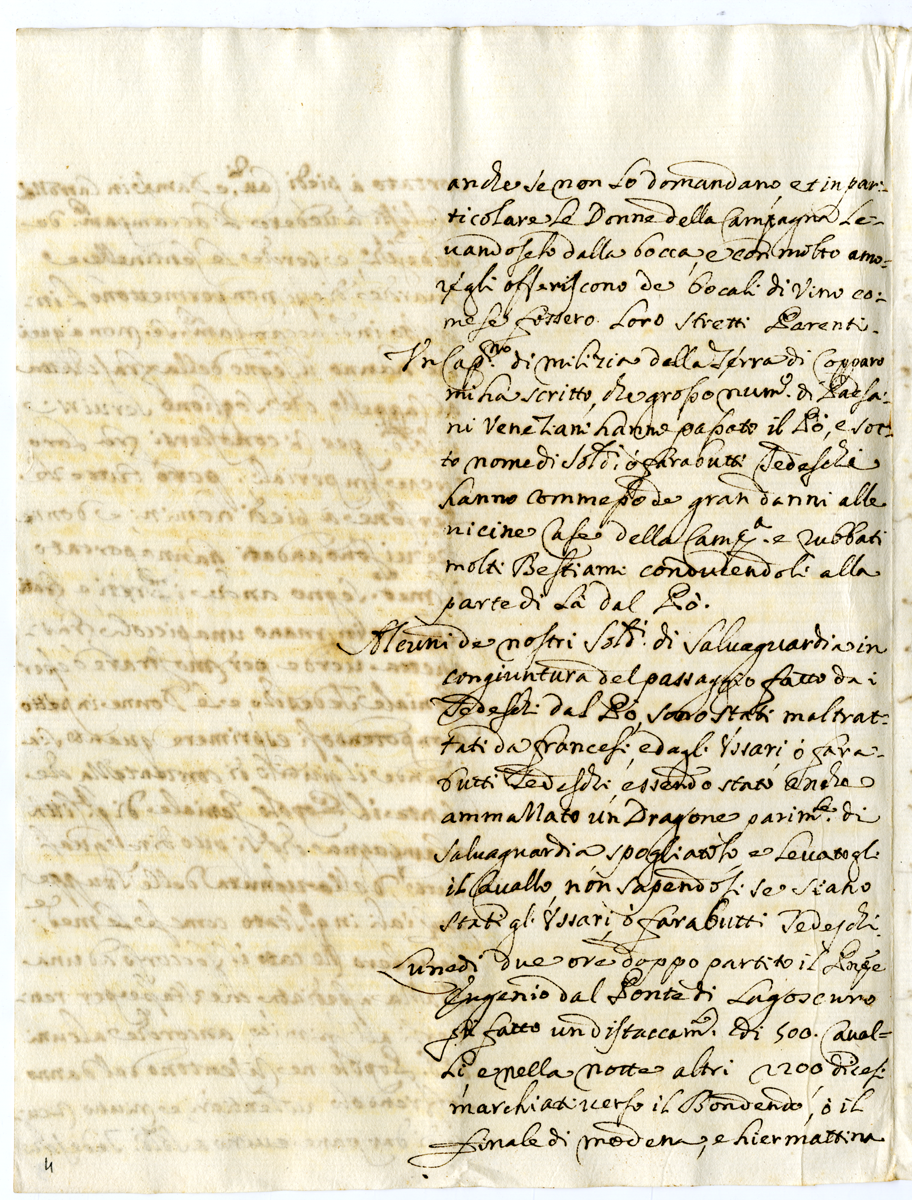 anche se non Lo domandano et in par:
ticolare Le Donne della Campagna Le=
uandoselo dalla bocca, e con molto amo=
re gli offeriscono de bocali di Vino co:
me se fossero Loro stretti Parenti.
Un Cap.no di milizia della Terra di Copparo
mi ha scritto, che grosso num.o di Paesa:
ni Veneziani hanno passato il Pò, e sot:
to nome di Sold.i ò farabutti Tedeschi
hanno commesso de gran danni alle
uicine Case della Camp.a e rubbati
molti Bestiami conducendoli alla
parte di Là dal Pò.
Alcuni de nostri Sold.i di Saluaguardia in
congiuntura del passaggio fatto da i
Tedeschi dal Pò, sono stati maltrat=
tati da francesi, e dagli Ussari ò fara=
butti Tedeschi, essendo stato anche
ammallato un Dragone parim.te di
saluaguardia spogliatolo e Leuatogli
il Cauallo, non sapendosi se siano
stati gli Ussari, ò farabutti Tedeschi.
Lunedì due ore doppo partito il Pnpe
Eugenio dal Ponte di Lagoscuro
fu fatto un distaccam.o di 500. Caual=
Li e nella notte altri 2200 dicesi
marchiati uerso il Bondeno, ò il
finale di modena, e hiermattina
4